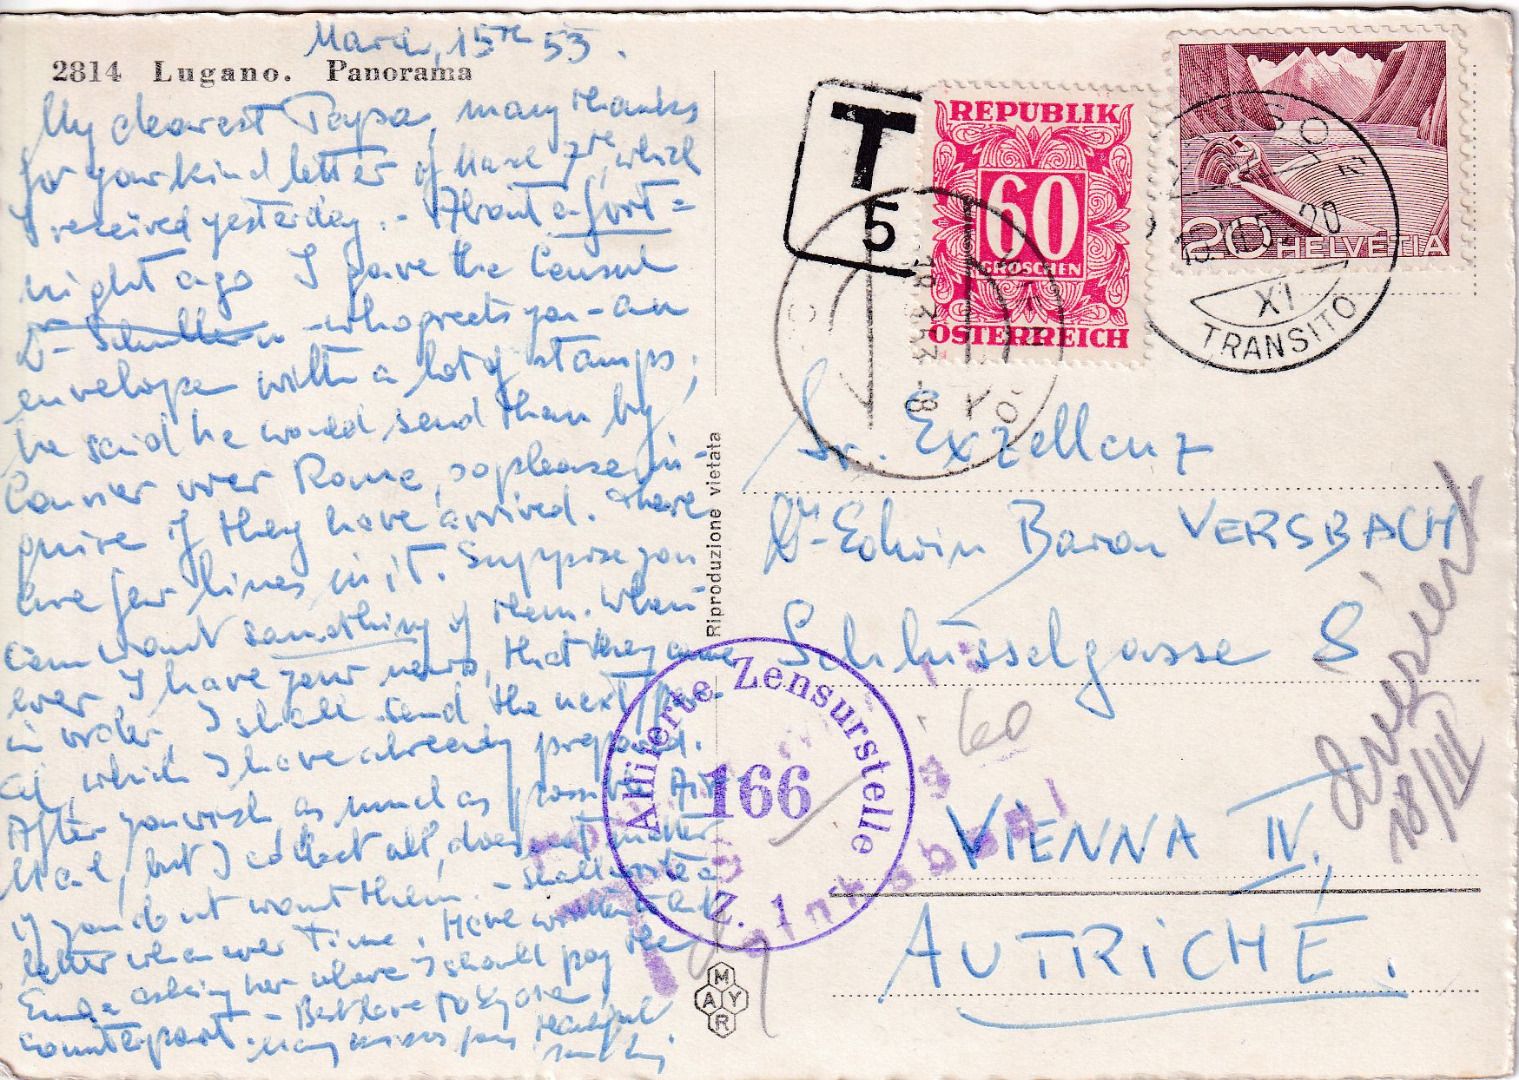 March, 15th 53.
2814 Lugano. Panorama
My dearest Papa, many thanks
for your kind letter of March 7th, which
I received yesterday. - About a fort=
night ago I gave the Consul
Dr Schullern - who greets you - an
envelope with a lot of stamps;
he said he would send them by
Courier over Rome, so please in-
quire if they have arrived. There
are few lines in it. Suppose you
can want something of them. When-
ever I have your news, that they are
in order, I shall send the next par-
cel, which I have already prepared.
After you wish as much as possible Air
Mail, but I collect all, does not matter
if you do not want them. - Shall write a
letter whenever Time. Have written
asking her where I should pay the
counterpart. - Best love to
Many kisses from
Reproduzione vietata
MAYR
T
5
REPUBLIK
60
GROSCHEN
ÖSTERREICH
20 HELVETIA
XI
TRANSITO
18.3.53.-8
Sr. Exzellenz
Dr Edwin Baron VERSBACH
Schlüsselgasse 8
VIENNA IV,
AUTRICHE.
Alliierte Zensurstelle
166
Z. 1
60
18/III